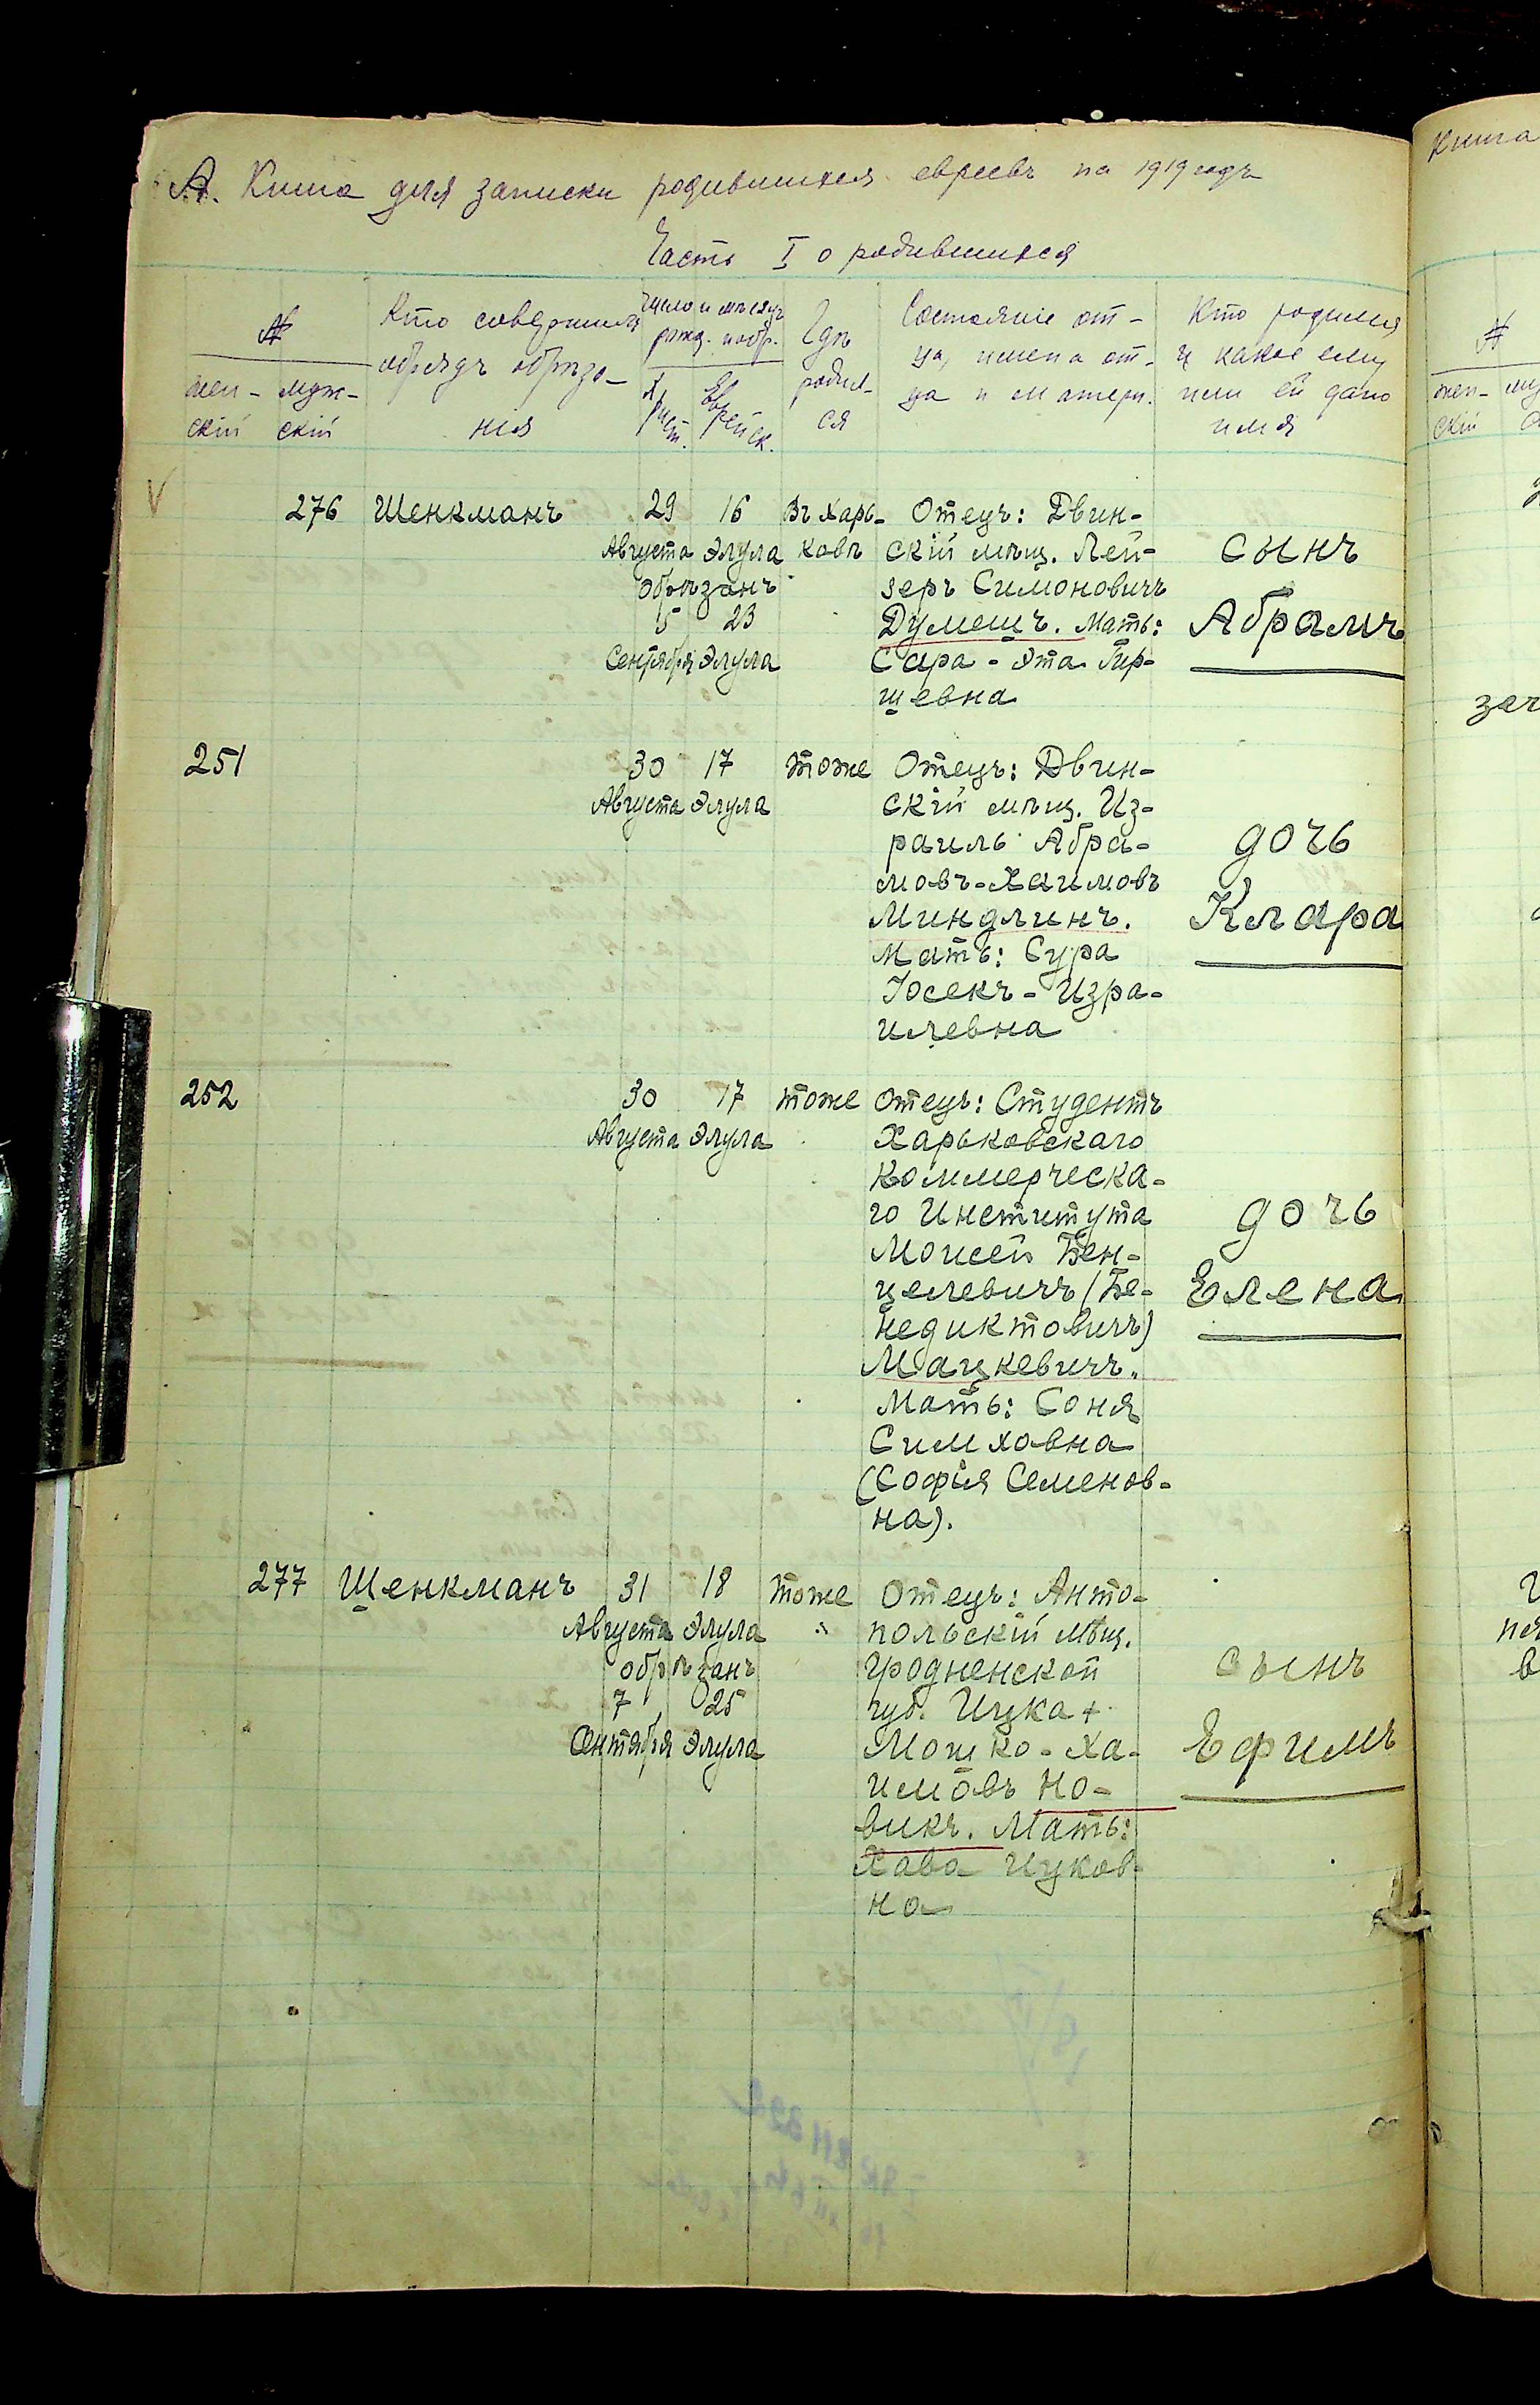 А. Книга для записки родившихся евреевъ на 1919 годъ
Часть I о родившихся
№
жен- муж-
скій скій
Кто совершилъ
обрядъ обрѣза-
нія
Число и мѣсяцъ
рожд. и обр.
Христ. Еврейск.
Гдѣ
родил-
ся
Состояніе от-
ца, имена от-
ца и матери.
Кто родился
и какое ему
или ей дано
имя
276 Шенкманъ
29 16
Августа Элула
обрѣзанъ
5 23
Сентября Элула
Въ Харь-
ковѣ
Отецъ: Двин-
скій мѣщ. Лей-
зеръ Симоновичъ
Думешъ. Мать:
Сара - Эта Гир-
шевна
сынъ
Абрамъ
251
30 17
Августа Элула
тоже
Отецъ: Двин-
скій мѣщ. Из-
раиль Абра-
мовъ-Хаимовъ
Миндлинъ.
Мать: Сура
Іосекъ - Изра-
илевна
дочь
Клара
252
30 17
Августа Элула
тоже
Отецъ: Студентъ
Харьковскаго
Коммерческа-
го Института
Моисей Бен-
целевичъ (Бе-
недиктовичъ)
Мацкевичъ.
Мать: Соня
Симховна
(Софія Семенов-
на).
дочь
Елена
277 Шенкманъ
31 18
Августа Элула
обрѣзанъ
7 25
Сентября Элула
тоже
Отецъ: Анто-
польскій мѣщ.
Гродненской
губ. Ицка
Мошко - Ха-
имовъ Но-
викъ. Мать:
Хава Ицков-
на
сынъ
Ефимъ
Книга
№
жен-
скій